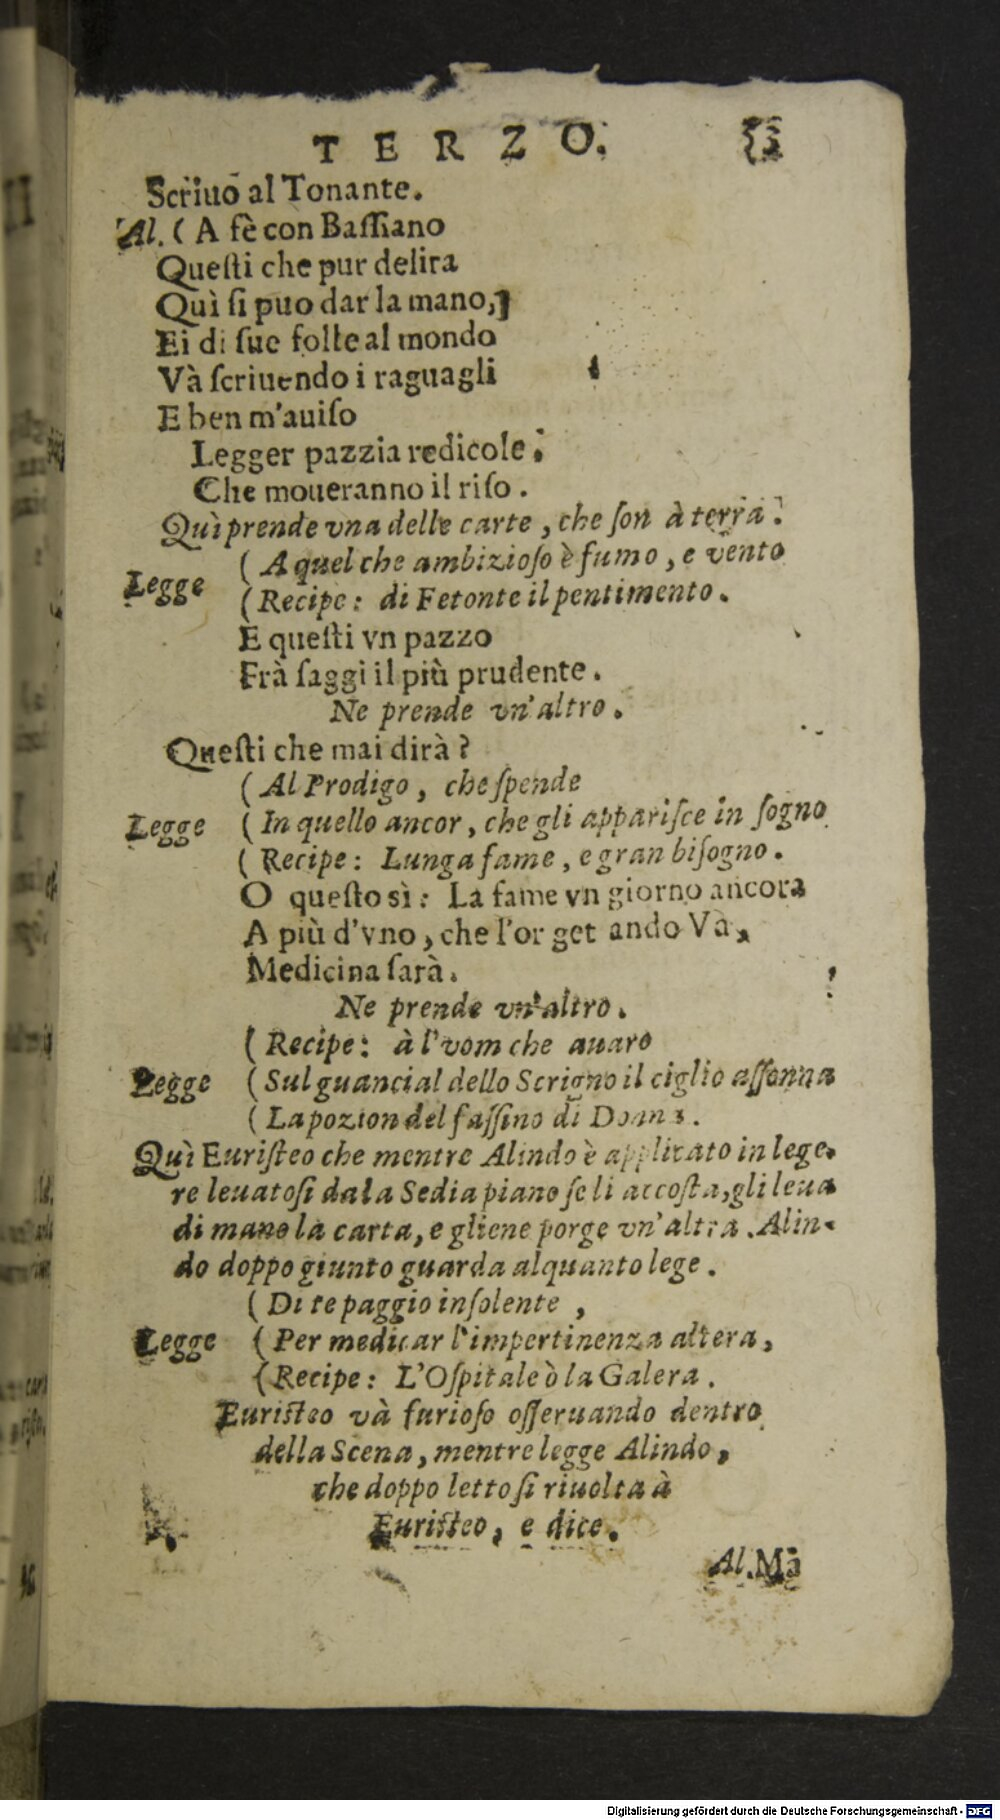 TERZO. 53
Scriuo al Tonante.
Al. (A fè con Baſſiano
Queſti che pur delira
Quì ſi puo dar la mano,
Ei di ſue folle al mondo
Và ſcriuendo i raguagli
E ben m'auiſo
Legger pazzia redicole:
Che moueranno il riſo.
Quì prende vna delle carte, che ſon à terra.
(A quel che ambizioſo è fumo, e vento
Legge (Recipe: di Fetonte il pentimento.
E queſti vn pazzo
Frà ſaggi il più prudente.
Ne prende vn'altro.
Queſti che mai dirà?
(Al Prodigo, che ſpende
Legge (In quello ancor, che gli appariſce in ſogno
(Recipe: Lunga fame, e gran biſogno.
O queſto sì: La fame vn giorno ancora
A più d'vno, che l'or get ando Và,
Medicina ſarà.
Ne prende vn'altro.
(Recipe: à l'vom che auaro
Legge (Sul guancial dello Scrigno il ciglio aſſonna
(La pozion del faſſino di
Quì Euriſteo che mentre Alindo è applicato in lege-
re leuatoſi dala Sedia piano ſe li accoſta, gli leua
di mano la carta, e gliene porge vn'altra. Alin-
do doppo giunto guarda alquanto lege.
(Di te paggio inſolente,
Legge (Per medicar l'impertinenza altera,
(Recipe: L'Oſpitale ò la Galera.
Euriſteo và furioſo oſſeruando dentro
della Scena, mentre legge Alindo,
che doppo letto ſi riuolta à
Euriſteo, e dice.
Al. Mà
Digitalisierung gefördert durch die Deutsche Forschungsgemeinschaft - DFG